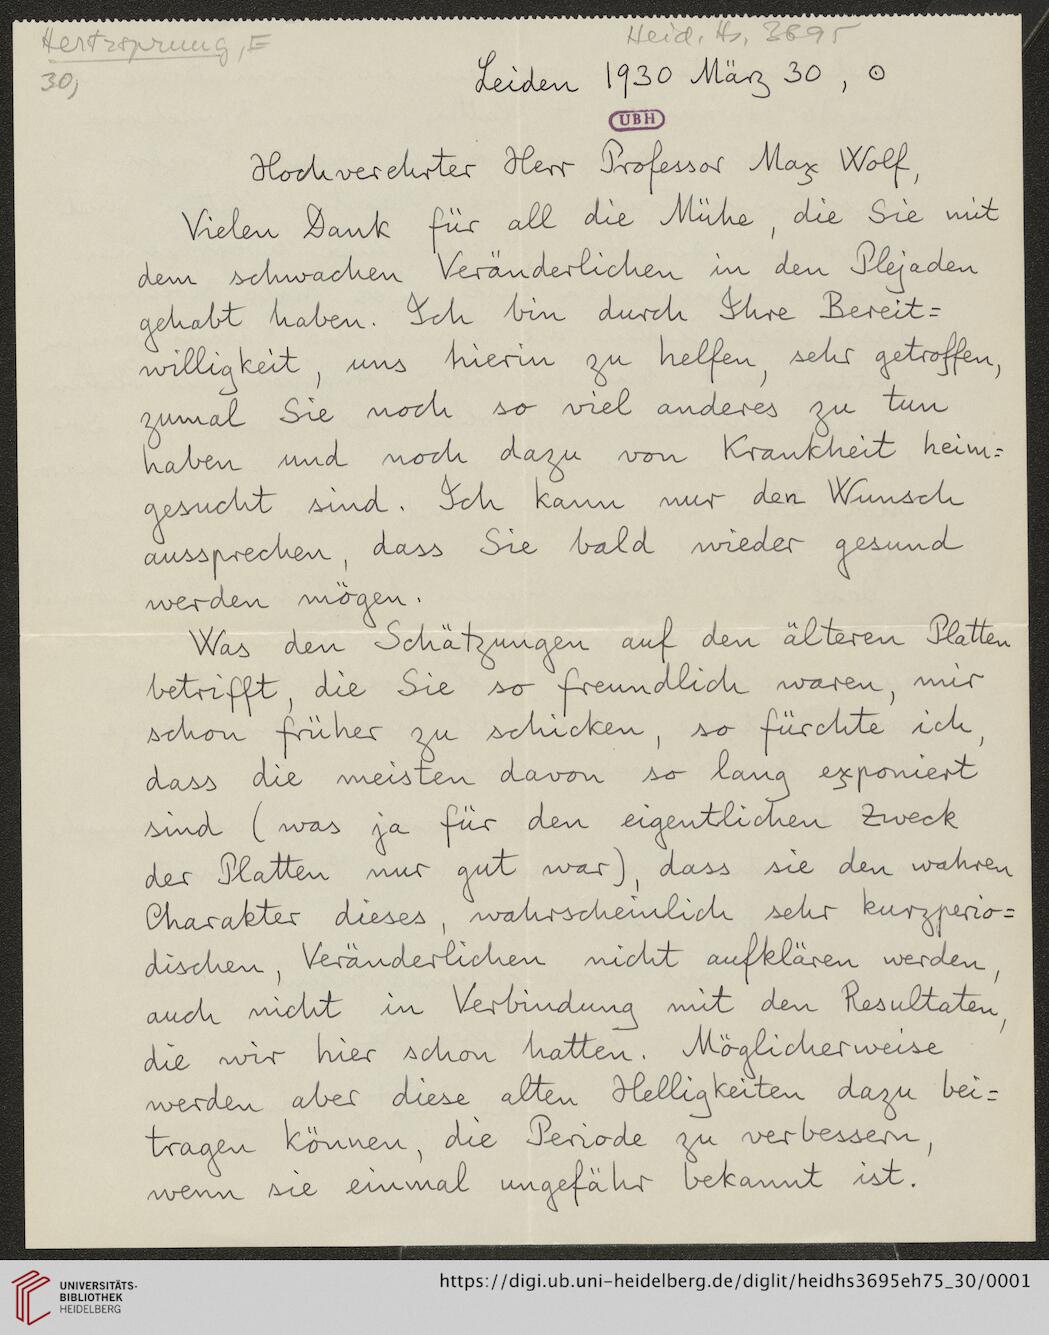 Hertzsprung, E
Heid. Hs. 3695
30,
Leiden 1930 März 30, ⊙
UBH
Hochverehrter Herr Professor Max Wolf,
Vielen Dank für all die Mühe, die Sie mit
dem schwachen Veränderlichen in den Plejaden
gehabt haben. Ich bin durch Ihre Bereit=
willigkeit, uns hierin zu helfen, sehr getroffen,
zumal Sie noch so viel anderes zu tun
haben und noch dazu von Krankheit heim=
gesucht sind. Ich kann nur den Wunsch
aussprechen, dass Sie bald wieder gesund
werden mögen.
Was den Schätzungen auf den älteren Platten
betrifft, die Sie so freundlich waren, mir
schon früher zu schicken, so fürchte ich,
dass die meisten davon so lang exponiert
sind (was ja für den eigentlichen Zweck
der Platten nur gut war), dass sie den wahren
Charakter dieses, wahrscheinlich sehr kurzperio=
dischen, Veränderlichen nicht aufklären werden,
auch nicht in Verbindung mit den Resultaten,
die wir hier schon hatten. Möglicherweise
werden aber diese alten Helligkeiten dazu bei=
tragen können, die Periode zu verbessern,
wenn sie einmal ungefähr bekannt ist.
UNIVERSITÄTS-
BIBLIOTHEK
HEIDELBERG
https://digi.ub.uni-heidelberg.de/diglit/heidhs3695eh75_30/0001